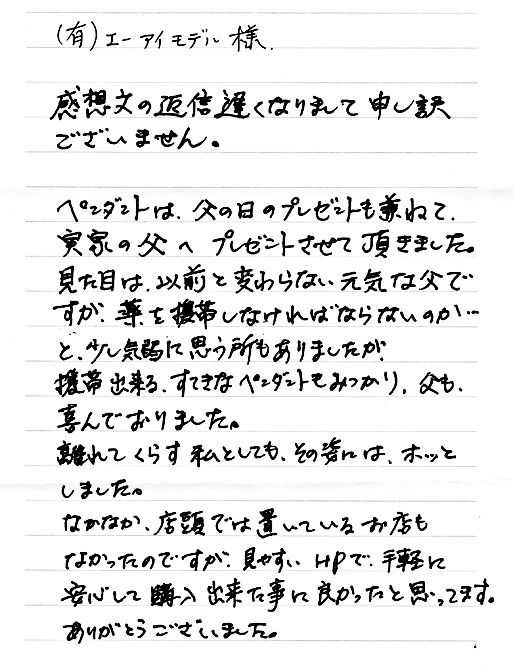 (有)エーアイモデル様.
感想文の返信遅くなりまして申し訳
ございません。
ペンダントは、父の日のプレゼントも兼ねて、
実家の父へプレゼントさせて頂きました。
見た目は、以前と変わらない元気な父で
すが、薬を携帯しなければならないのか…
と、少し気弱に思う所もありましたが、
携帯出来る、すてきなペンダントをみつかり、父も、
喜んでおりました。
離れてくらす私としても、その姿には、ホッと
しました。
なかなか、店頭では置いているお店も
なかったのですが、見やすいHPで、手軽に
安心して購入出来た事に良かったと思ってます。
ありがとうございました。